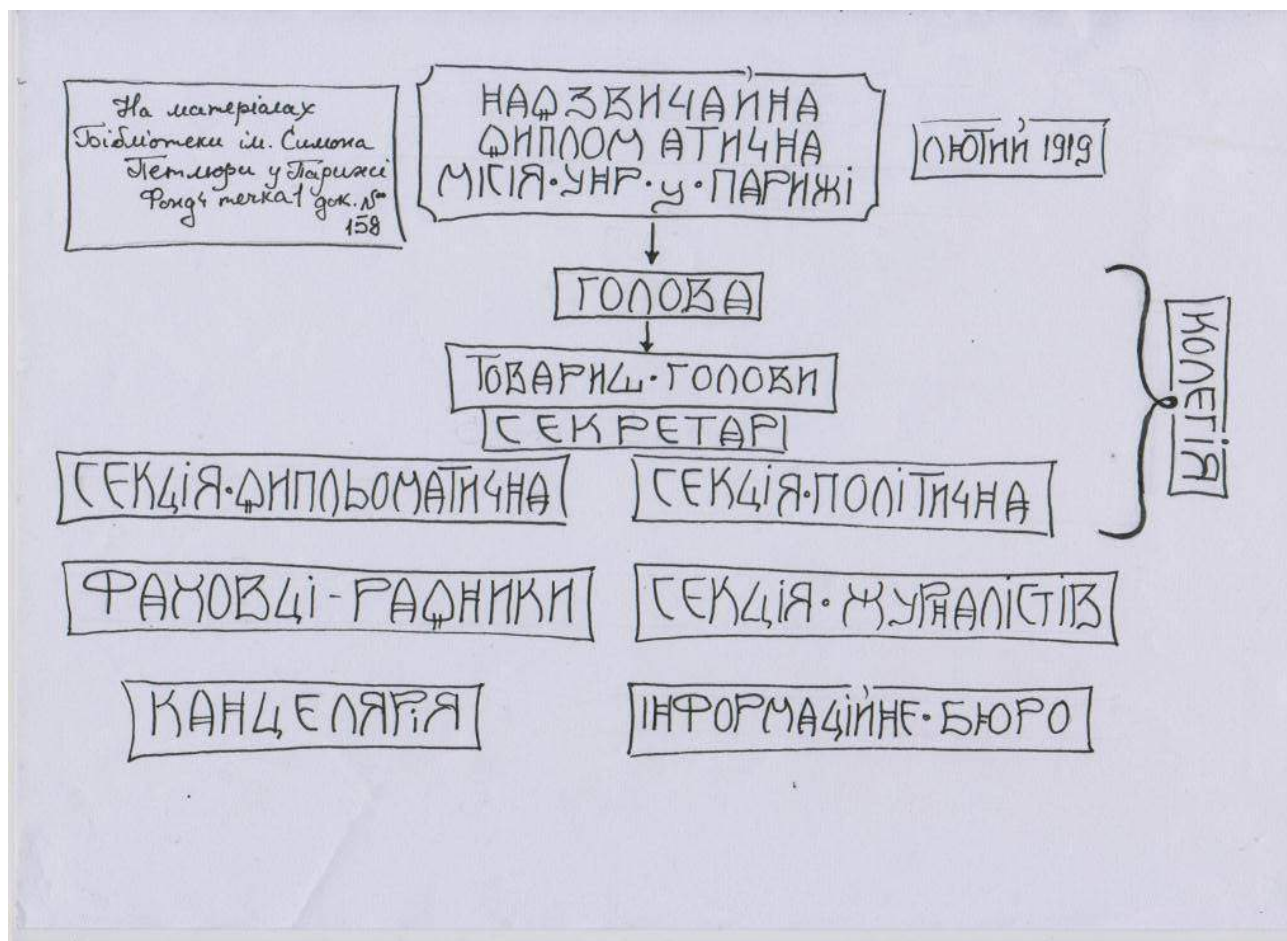 На матеріалах
Бібліотеки ім. Симона
Петлюри у Парижі
Фонд 4 течка 1 док. №
158
НАДЗВИЧАЙНА
ДИПЛОМАТИЧНА
МІСІЯ·УНР·у·ПАРИЖІ
ЛЮТИЙ 1919
ГОЛОВА
ТОВАРИШ·ГОЛОВИ
СЕКРЕТАРІ
КОЛЕГІЯ
СЕКЦІЯ·ДИПЛЬОМАТИЧНА
СЕКЦІЯ·ПОЛІТИЧНА
ФАХОВЦІ-РАДНИКИ
СЕКЦІЯ·ЖУРНАЛІСТІВ
КАНЦЕЛЯРІЯ
ІНФОРМАЦІЙНЕ·БЮРО